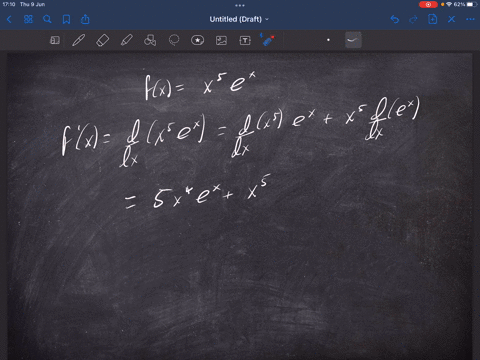 17:10 Thu 9 Jun
62%
Untitled (Draft)
f(x) = x⁵ eˣ
f'(x) = d/dx (x⁵ eˣ) = d/dx (x⁵) eˣ + x⁵ d/dx (eˣ)
= 5x⁴ eˣ + x⁵